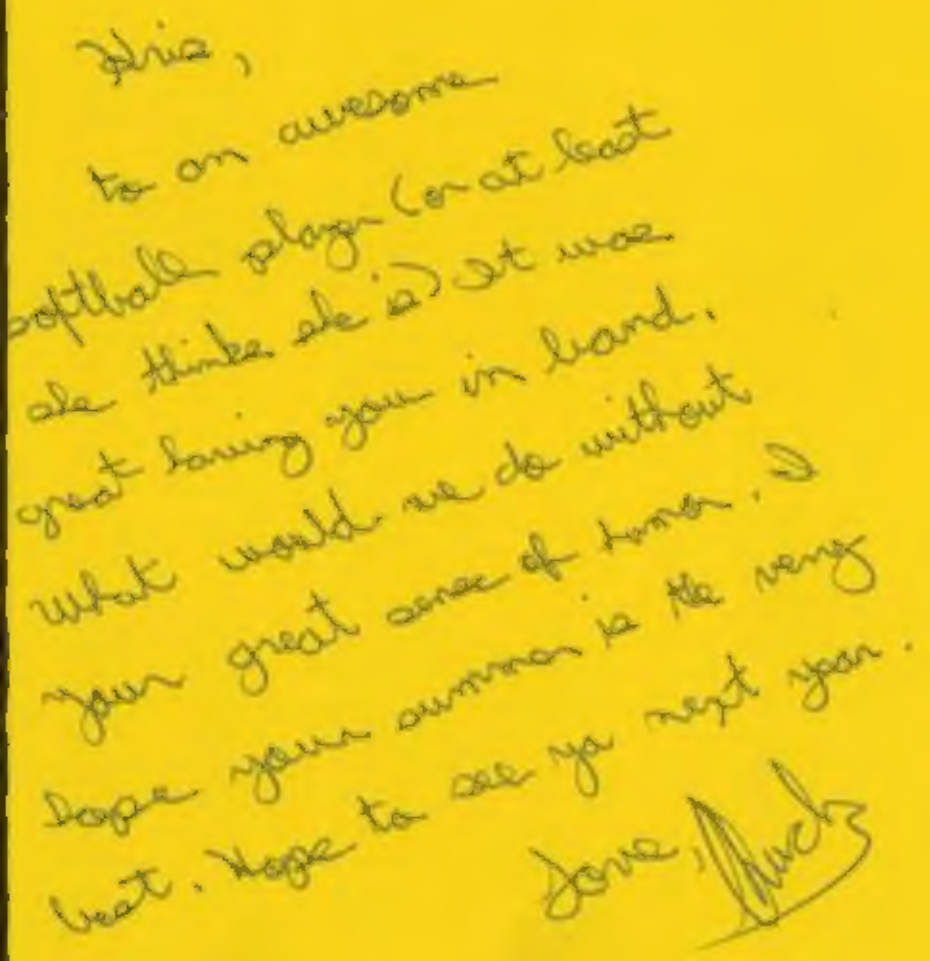 Kris,
to an awesome
softball player (or at least
she thinks she is) It was
great having you in band.
What would we do without
your great sense of humor. I
hope your summer is the very
best. Hope to see ya next year.
Love,